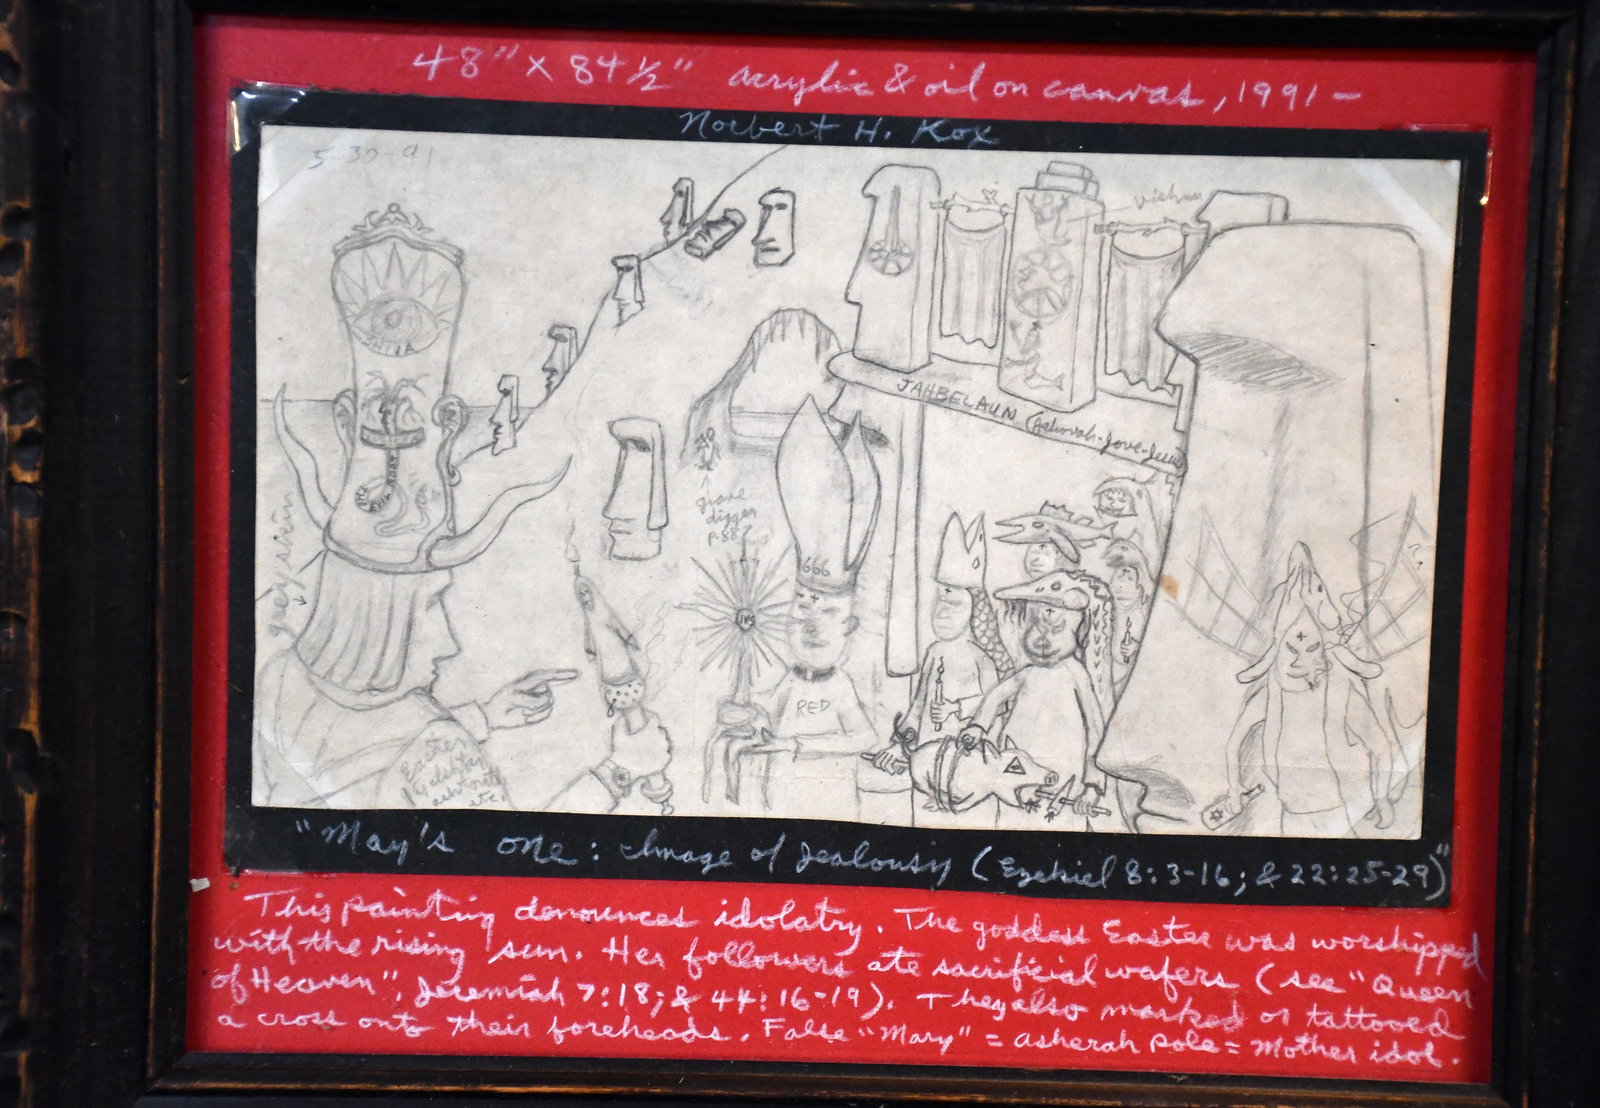 48" x 84 ½" acrylic & oil on canvas, 1991 –
Norbert H. Kox
5-30-91
Vishnu
SHIVA
JAHBELAUN (Jehovah-Jove-Jesus
grave
digger
p. 88
grey skin
666
IHS
RED
Easter
Ishtar
Ashtoreth
etc.
"May's one: Image of Jealousy (Ezekiel 8:3-16; & 22:25-29)"
This painting denounces idolatry. The goddess Easter was worshipped
with the rising sun. Her followers ate sacrificial wafers (see "Queen
of Heaven", Jeremiah 7:18; & 44:16-19). They also marked or tattooed
a cross onto their foreheads. False "Mary" = asherah pole = Mother idol.